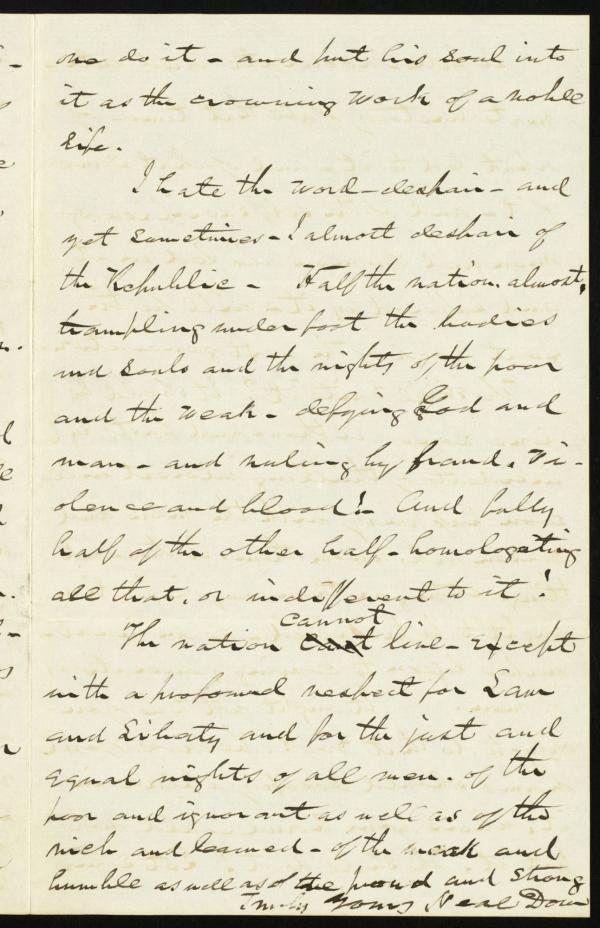 one do it - and put his soul into
it as the crowning work of a noble
life.
I hate the word - despair - and
yet sometimes - I almost despair of
the Republic - Half the nation, almost,
trampling under foot the bodies
and souls and the rights of the poor
and the weak - defying God and
man - and ruling by fraud, vi-
olence and blood! - And fully
half of the other half - homologating
all that, or indifferent to it!
cannot
The nation can't live - except
with a profound respect for Law
and Liberty and for the just and
equal rights of all men - of the
poor and ignorant as well as of the
rich and learned - of the weak and
humble as well as of the proud and strong
Truly Yours Neal Dow